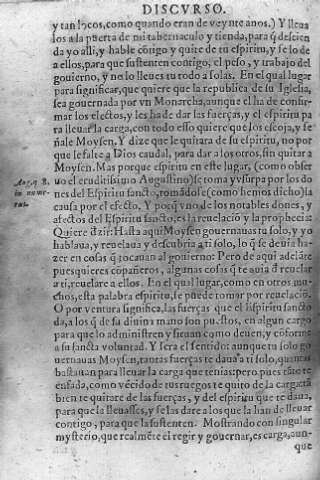 DISCVRSO.
y tan locos, como quando eran de veynte anos.) Y lleua
los a la puerta de mi tabernaculo y tienda, para q̃ descien
da yo alli, y hable cõtigo y quite de tu espiritu, y se lo dè
a ellos, para que sustenten contigo, el peso, y trabajo del
gouierno, ÿ no lo lleues tu todo a solas. En el qual lugar
para significar, que quiere que la republica de su Iglesia,
sea gouernada por vn Monarcha, aunque el ha de confir-
mar los electos, y les ha de dar las fuerças, y el espiritu pa
ra lleuar la carga, con todo esso quiere que los escoja, y se
ñale Moysen. Y dize que le quitara de su espiritu, no por
que le falte a Dios caudal, para dar a los otros, sin quitar a
Moysen. Mas porque espiritu en este lugar, (como obser
Aug. q. 8. uo el eruditissimo Augustino) se toma y vsurpa por los do
in nume- nes del Espiritu sancto, tomãdose (como hemos dicho) la
ros. causa por el efecto. Y porq̃ vno de los notables dones, y
afectos del Espiritu sancto, es la reuelaciõ y la prophecia:
Quiere dzir: Hasta aqui Moysen gouernauas tu solo, y yo
hablaua, y reuelaua y descubria a ti solo, lo q̃ se deuia ha-
zer en cosas q̃ tocauan al gouierno: Pero de aqui adelãte
pues quieres cõpañeros, algunas cosas q̃ te auia đ reuelar
a ti, reuelare a ellos. En el qual lugar, como en otros mu-
chos, esta palabra espiritu, se puede tomar por reuelaciõ.
O por ventura significa, las fuerças que el Espiritu sancto
da, a los q̃ de su diuina mano son puestos, en algun cargo
para que lo administren y siruan como deuen, y cõforme
a su sancta voluntad. Y sera el sentido: aunque tu solo go
uernauas Moysen, tantas fuerças te daua a ti solo, quantas
bastauan para lleuar la carga que tenias: pero pues estas te
enfada, como vẽcido de tus ruegos te quito de la carga: tã
bien te quitare de las fuerças, y del espiritu que te daua,
para que la lleuasses, y se las dare a los que la han de lleuar
contigo, para que la sustenten. Mostrando con singular
mysterio, que realmẽte el regir y gouernar, es carga, aun-
que